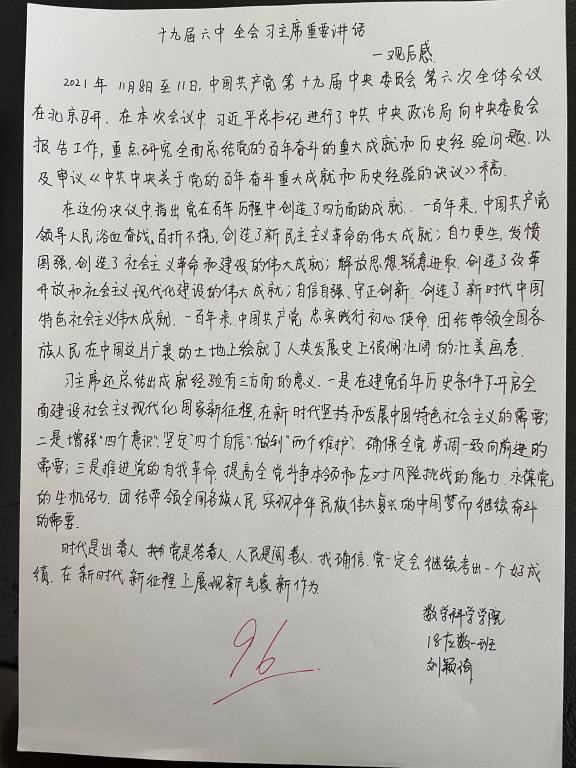 十九届六中全会习主席重要讲话
—观后感
2021年11月8日至11日,中国共产党第十九届中央委员会第六次全体会议
在北京召开.在本次会议中.习近平总书记进行了中共中央政治局向中央委员会
报告工作,重点研究全面总结党的百年奋斗的重大成就和历史经验问题.以
及审议《中共中央关于党的百年奋斗重大成就和历史经验的决议》稿.
在这份决议中.指出党在百年历程中创造了四方面的成就..一百年来,中国共产党
领导人民浴血奋战、百折不挠,创造了新民主主义革命的伟大成就;自力更生,发愤
图强,创造了社会主义革命和建设的伟大成就;解放思想.锐意进取.创造了改革
开放和社会主义现代化建设的伟大成就;自信自强、守正创新.创造了新时代中国
特色社会主义伟大成就.一百年来.中国共产党忠实践行初心使命.团结带领全国各
族人民在中国这片广袤的土地上绘就了人类发展史上波澜壮阔的壮美画卷.
习主席还总结出成就经验有三方面的意义.一是在建党百年历史条件下开启全
面建设社会主义现代化国家新征程,在新时代坚持和发展中国特色社会主义的需要;
二是增强"四个意识".坚定"四个自信".做到"两个维护".确保全党步调一致向前进的
需要;三是推进党的自我革命.提高全党斗争本领和应对风险挑战的能力.永葆党
的生机活力.团结带领全国各族人民实现中华民族伟大复兴的中国梦而继续奋斗
的需要.
时代是出卷人.我党是答卷人.人民是阅卷人.我确信.党一定会继续考出一个好成
绩.在新时代新征程上展现新气象新作为.
数学科学学院
18应数一班
刘颖倚
96